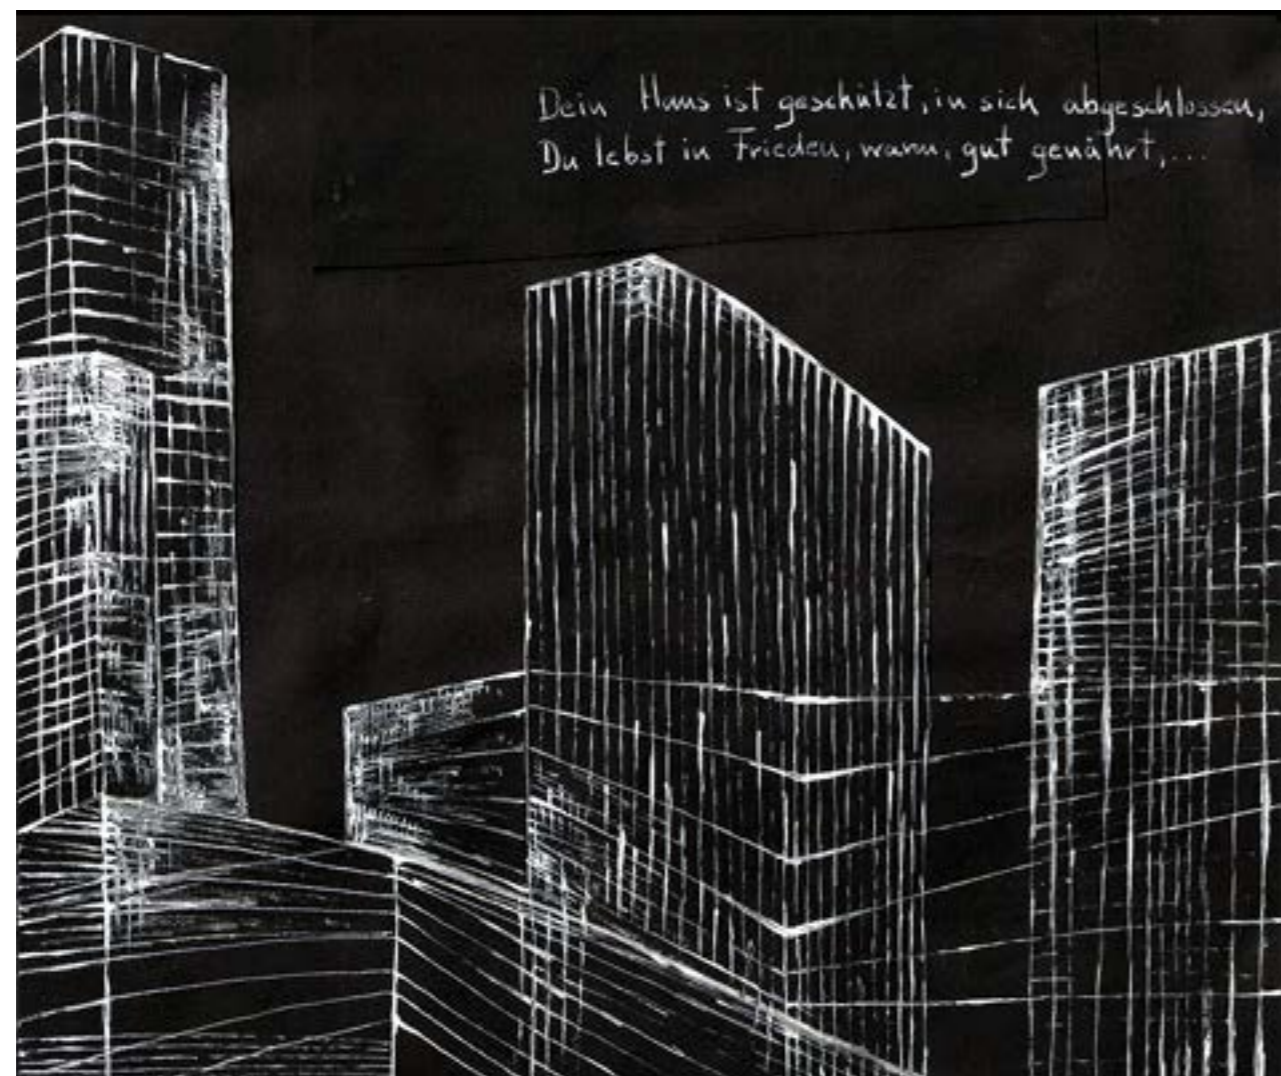 Dein Haus ist geschützt, in sich abgeschlossen,
Du lebst in Frieden, warm, gut genährt,...